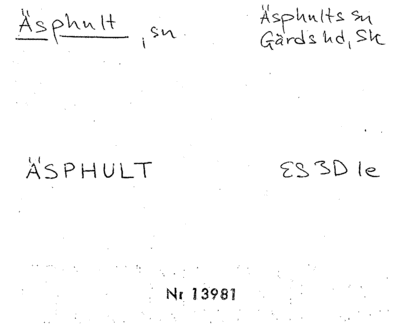 Äsphult, sn
Äsphults sn
Gärds hd, Sk
ÄSPHULT
ES 3D 1e
Nr 13981